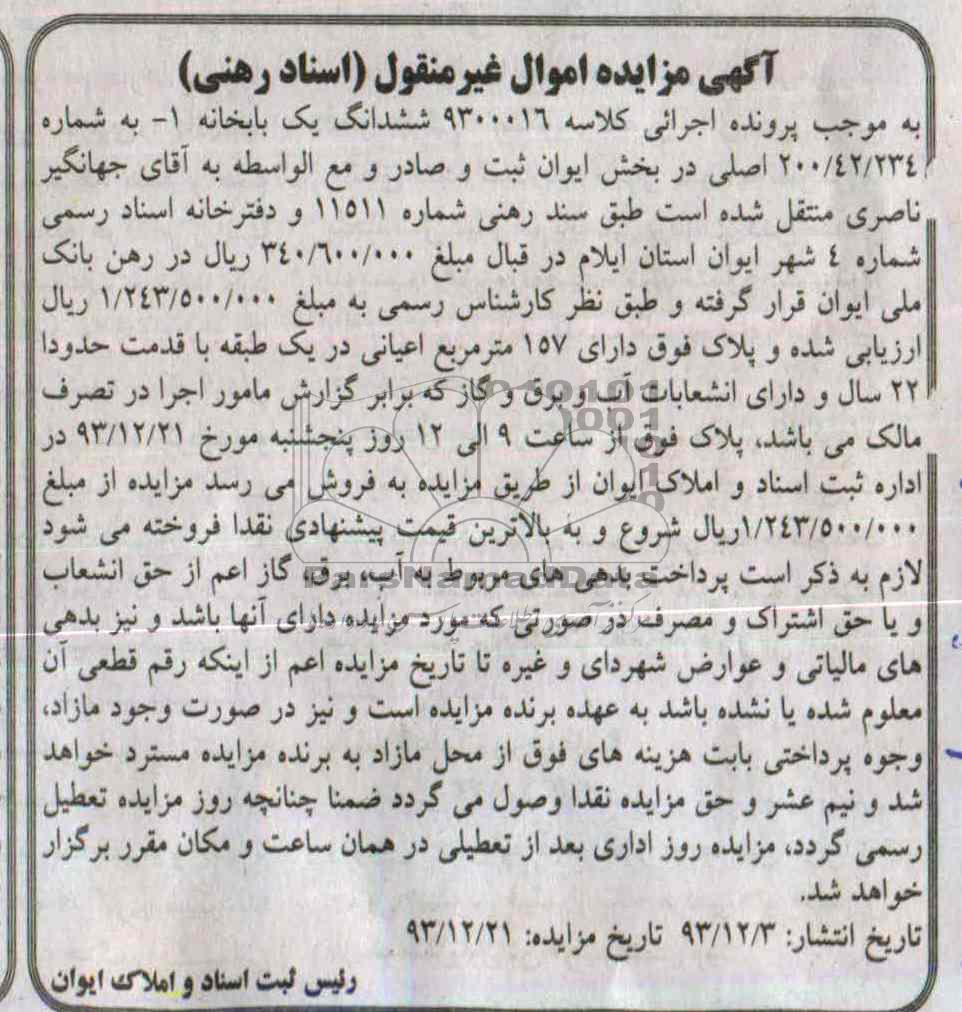 آگهی مزایده اموال غیرمنقول (اسناد رهنی)
به موجب پرونده اجرائی کلاسه ۹۳۰۰۰۱۶ ششدانگ یک بابخانه ۱- به شماره
۲۰۰/٤۲/۲۳٤ اصلی در بخش ایوان ثبت و صادر و مع الواسطه به آقای جهانگیر
ناصری منتقل شده است طبق سند رهنی شماره ۱۱۵۱۱ و دفترخانه اسناد رسمی
شماره ٤ شهر ایوان استان ایلام در قبال مبلغ ۳٤۰/٦۰۰/۰۰۰ ریال در رهن بانک
ملی ایوان قرار گرفته و طبق نظر کارشناس رسمی به مبلغ ۱/۲٤۳/۵۰۰/۰۰۰ ریال
ارزیابی شده و پلاک فوق دارای ۱۵۷ مترمربع اعیانی در یک طبقه با قدمت حدودا
۲۲ سال و دارای انشعابات آب و برق و گاز که برابر گزارش مامور اجرا در تصرف
مالک می باشد، پلاک فوق از ساعت ۹ الی ۱۲ روز پنجشنبه مورخ ۹۳/۱۲/۲۱ در
اداره ثبت اسناد و املاک ایوان از طریق مزایده به فروش می رسد مزایده از مبلغ
۱/۲٤۳/۵۰۰/۰۰۰ریال شروع و به بالاترین قیمت پیشنهادی نقدا فروخته می شود
لازم به ذکر است پرداخت بدهی های مربوط به آب، برق، گاز اعم از حق انشعاب
و یا حق اشتراک و مصرف در صورتی که مورد مزایده دارای آنها باشد و نیز بدهی
های مالیاتی و عوارض شهردای و غیره تا تاریخ مزایده اعم از اینکه رقم قطعی آن
معلوم شده یا نشده باشد به عهده برنده مزایده است و نیز در صورت وجود مازاد،
وجوه پرداختی بابت هزینه های فوق از محل مازاد به برنده مزایده مسترد خواهد
شد و نیم عشر و حق مزایده نقدا وصول می گردد ضمنا چنانچه روز مزایده تعطیل
رسمی گردد، مزایده روز اداری بعد از تعطیلی در همان ساعت و مکان مقرر برگزار
خواهد شد.
تاریخ انتشار: ۹۳/۱۲/۳ تاریخ مزایده: ۹۳/۱۲/۲۱
رئیس ثبت اسناد و املاک ایوان
ParsNamadData